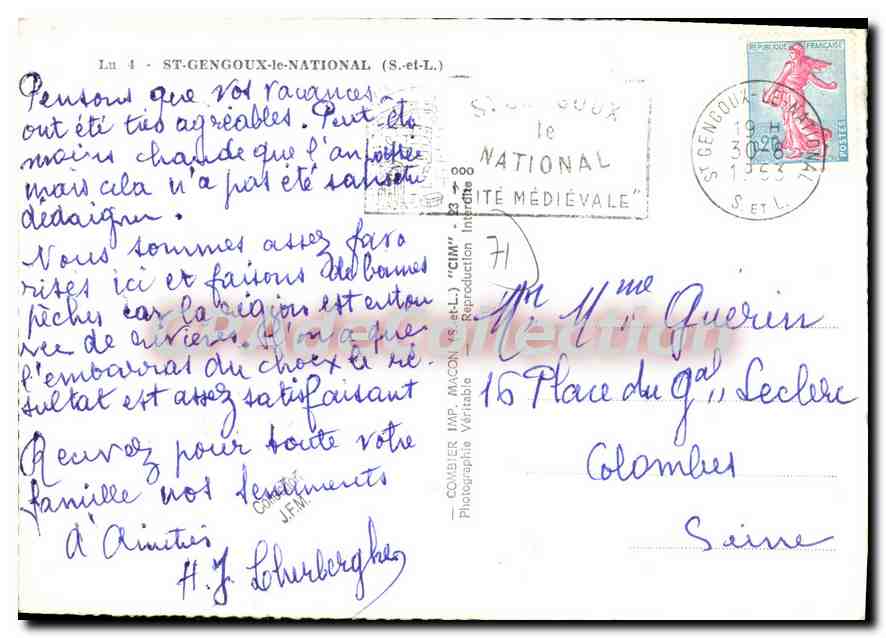 Lu 4 - ST-GENGOUX-le-NATIONAL (S.-et-L.)
Pensons que vos vacances
ont été très agréables. Peut être
moins chaude que l'an
mais cela n'a pas été sans
dédaigner.
Nous sommes assez favo
risés ici et faisons de bonnes
pêches car la région est entou
rée de rivières. que
l'embarras du choix le ré-
sultat est assez satisfaisant
Recevez pour toute votre
famille nos sentiments
d'Amitiés
H. J.
Collection
J.F.M.
— COMBIER IMP. MACON (S.-et-L.) "CIM" - 23 - 000
Photographie Véritable — Reproduction Interdite
ST GENGOUX
le
NATIONAL
"CITÉ MÉDIÉVALE"
ST GENGOUX-LE-NATIONAL
19 H
30-8
S. ET L.
RÉPUBLIQUE FRANÇAISE
0,20
POSTES
71
Mr. Mme Guérin
16 Place du Gal Leclerc
Colombes
Seine